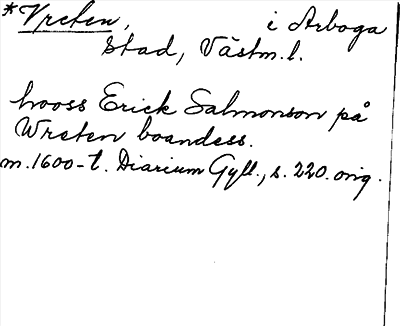 *Vreten, i Arboga
Stad, Västm. l.
hooss Erick Salmonson på
Wreten boandess.
m. 1600-t. Diarium Gyll., s. 220. orig.